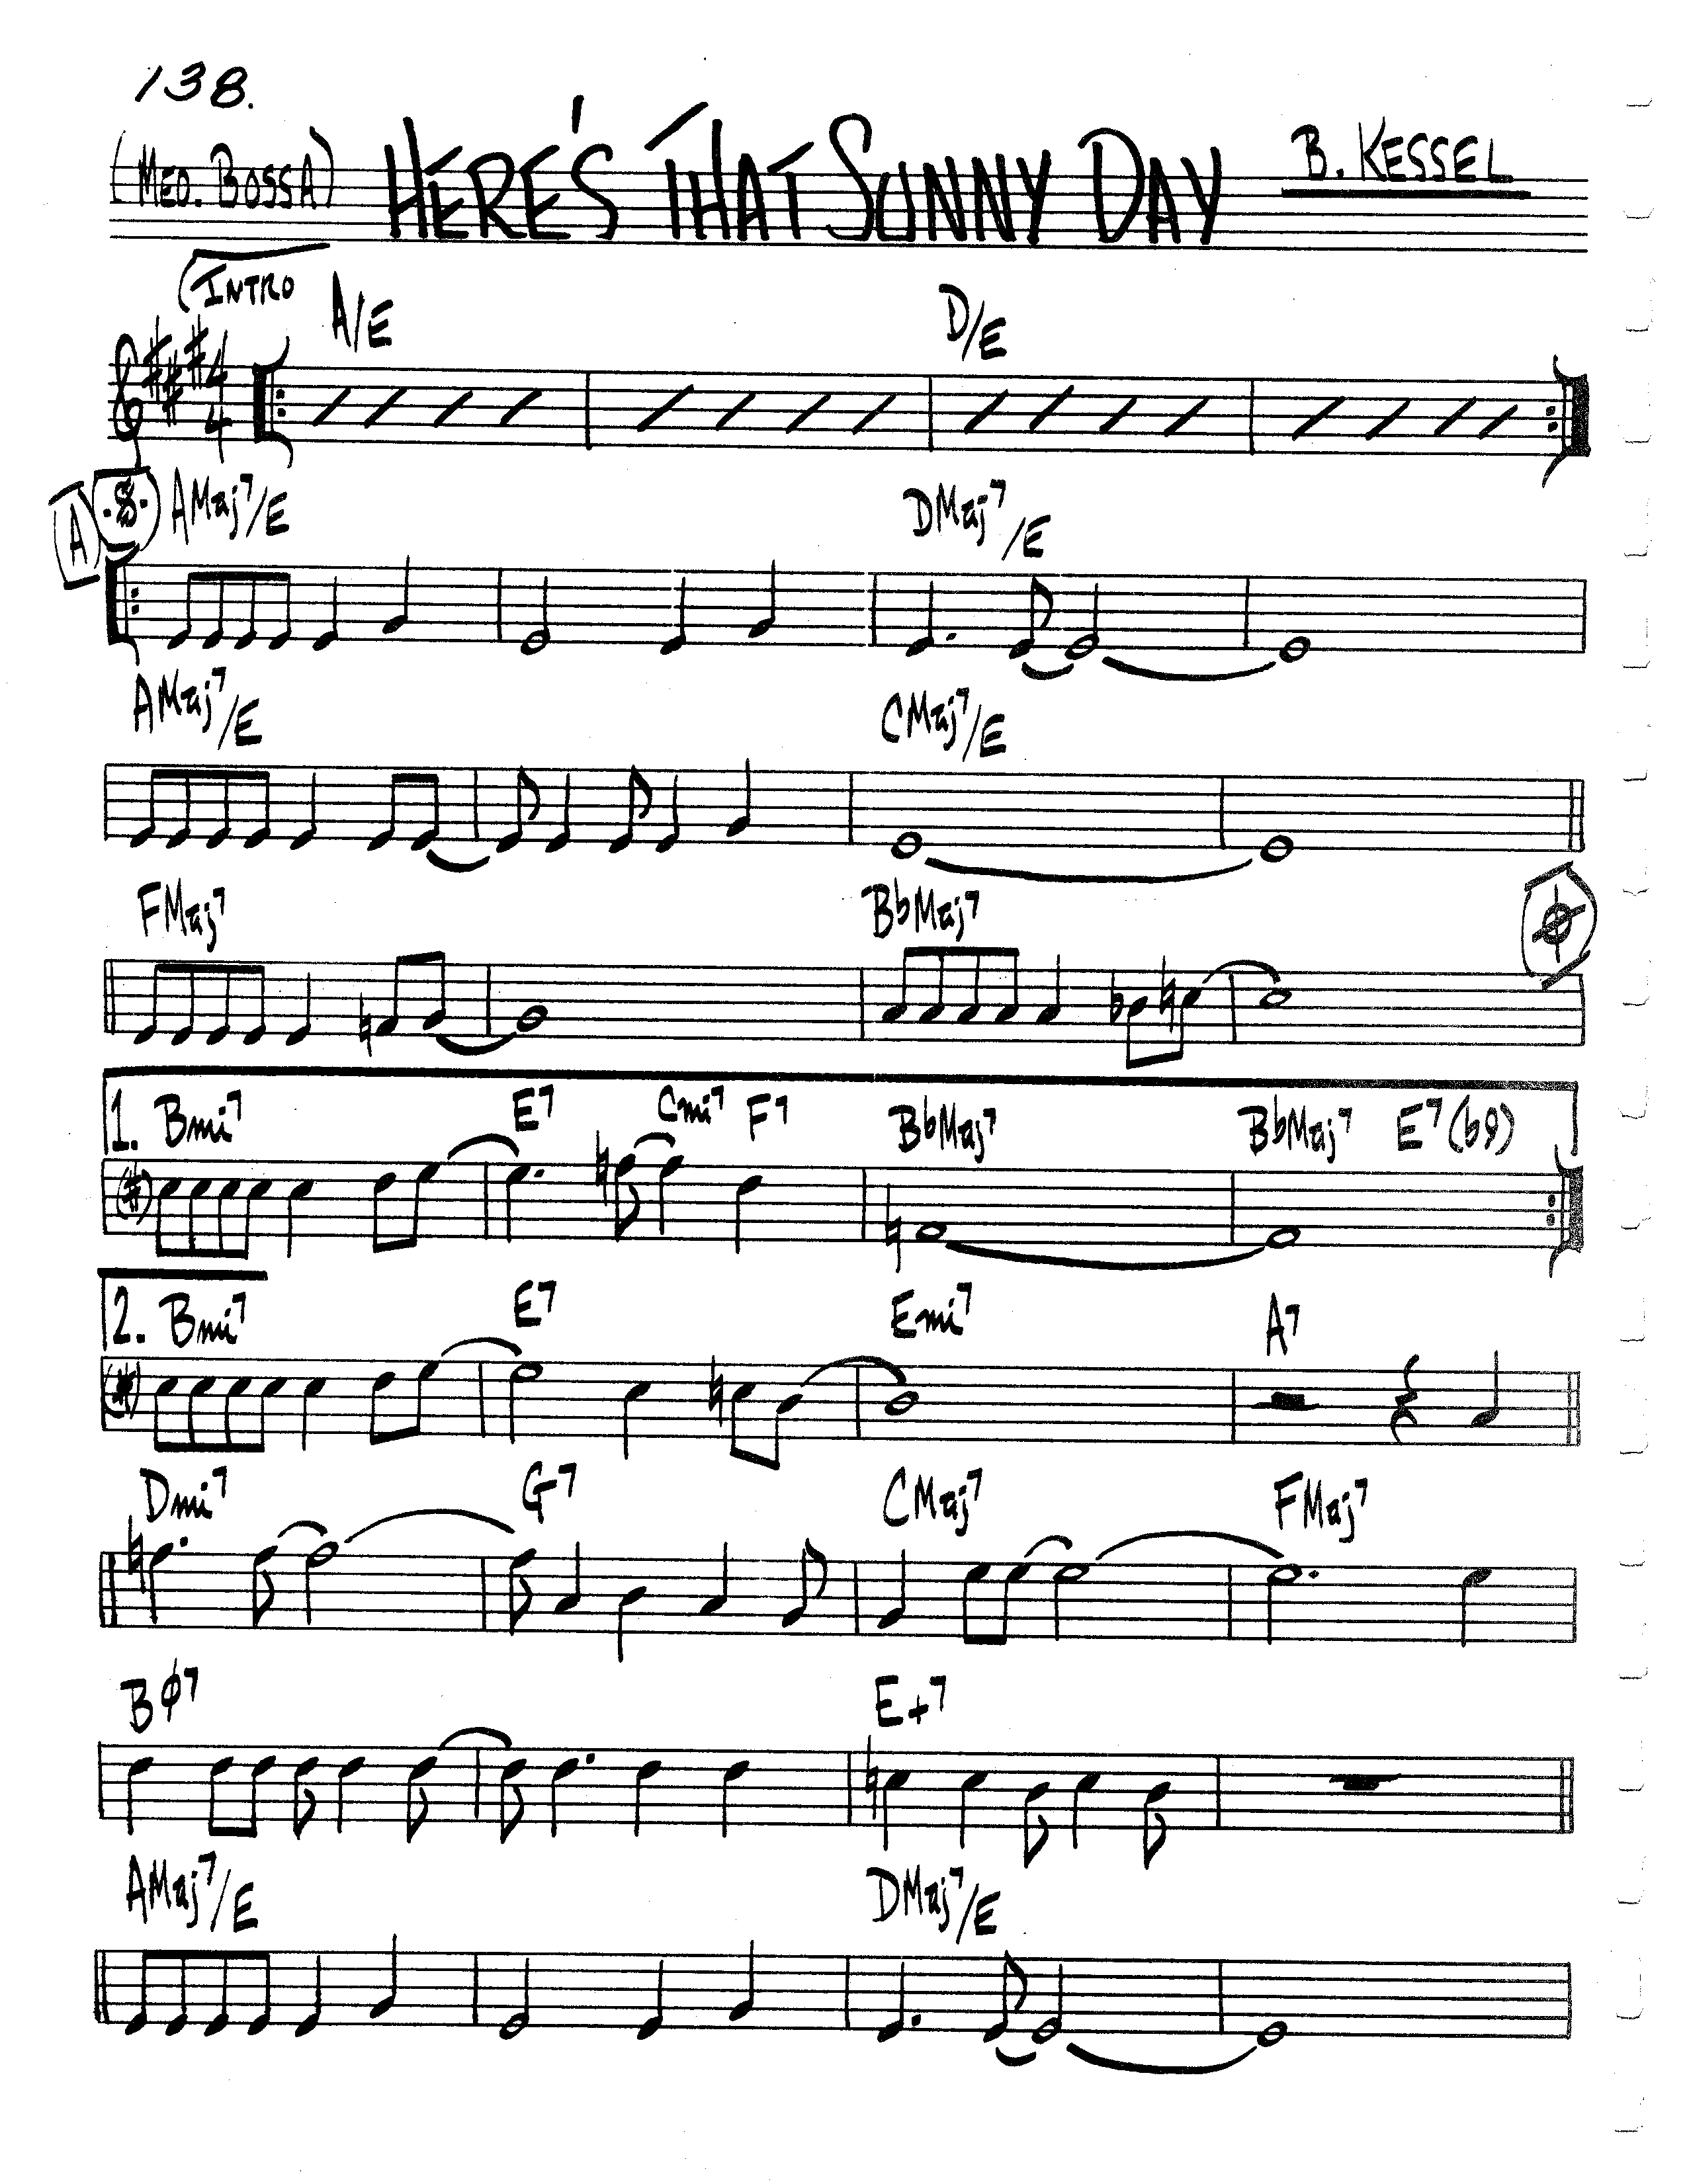 138.
(MED. BOSSA) HERE'S THAT SUNNY DAY B. KESSEL
(INTRO A/E D/E
4/4
A AMaj7/E DMaj7/E
AMaj7/E CMaj7/E
FMaj7 BbMaj7
1. Bmi7 E7 Cmi7 F7 BbMaj7 BbMaj7 E7(b9)
2. Bmi7 E7 Emi7 A7
Dmi7 G7 CMaj7 FMaj7
Bø7 E+7
AMaj7/E DMaj7/E